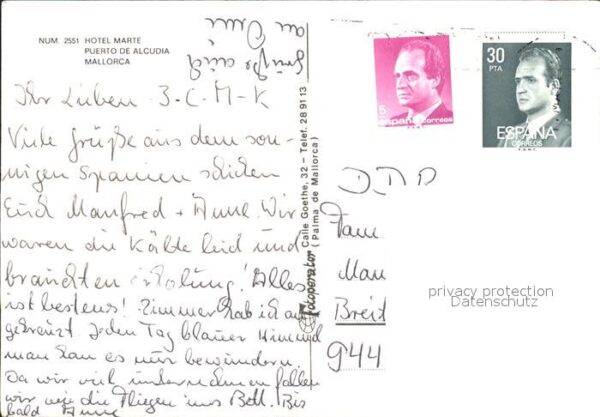 NUM. 2551 HOTEL MARTE
PUERTO DE ALCUDIA
MALLORCA
Grüße auch
an Omi
Ihr Lieben 3-C-M-K
Viele Grüße aus dem son-
nigen Spanien schicken
Euch Manfred + Anne. Wir
waren die Kälte leid und
brauchten Erholung! Alles
ist bestens! Zimmer hab ich an
gekreuzt. Jeden Tag blauer Himmel
man kan es nur bewundern.
Da wir viel unternehmen fallen
wir wie die Fliegen ins Bett. Bis
bald Anne
Fotoperator Calle Goethe, 32 - Telef. 28 91 13
(Palma de Mallorca)
5
españa correos
F.N.M.T.
30
PTA
ESPAÑA
CORREOS
F.N.M.T.
Fam
Man
Breit
944
privacy protection
Datenschutz